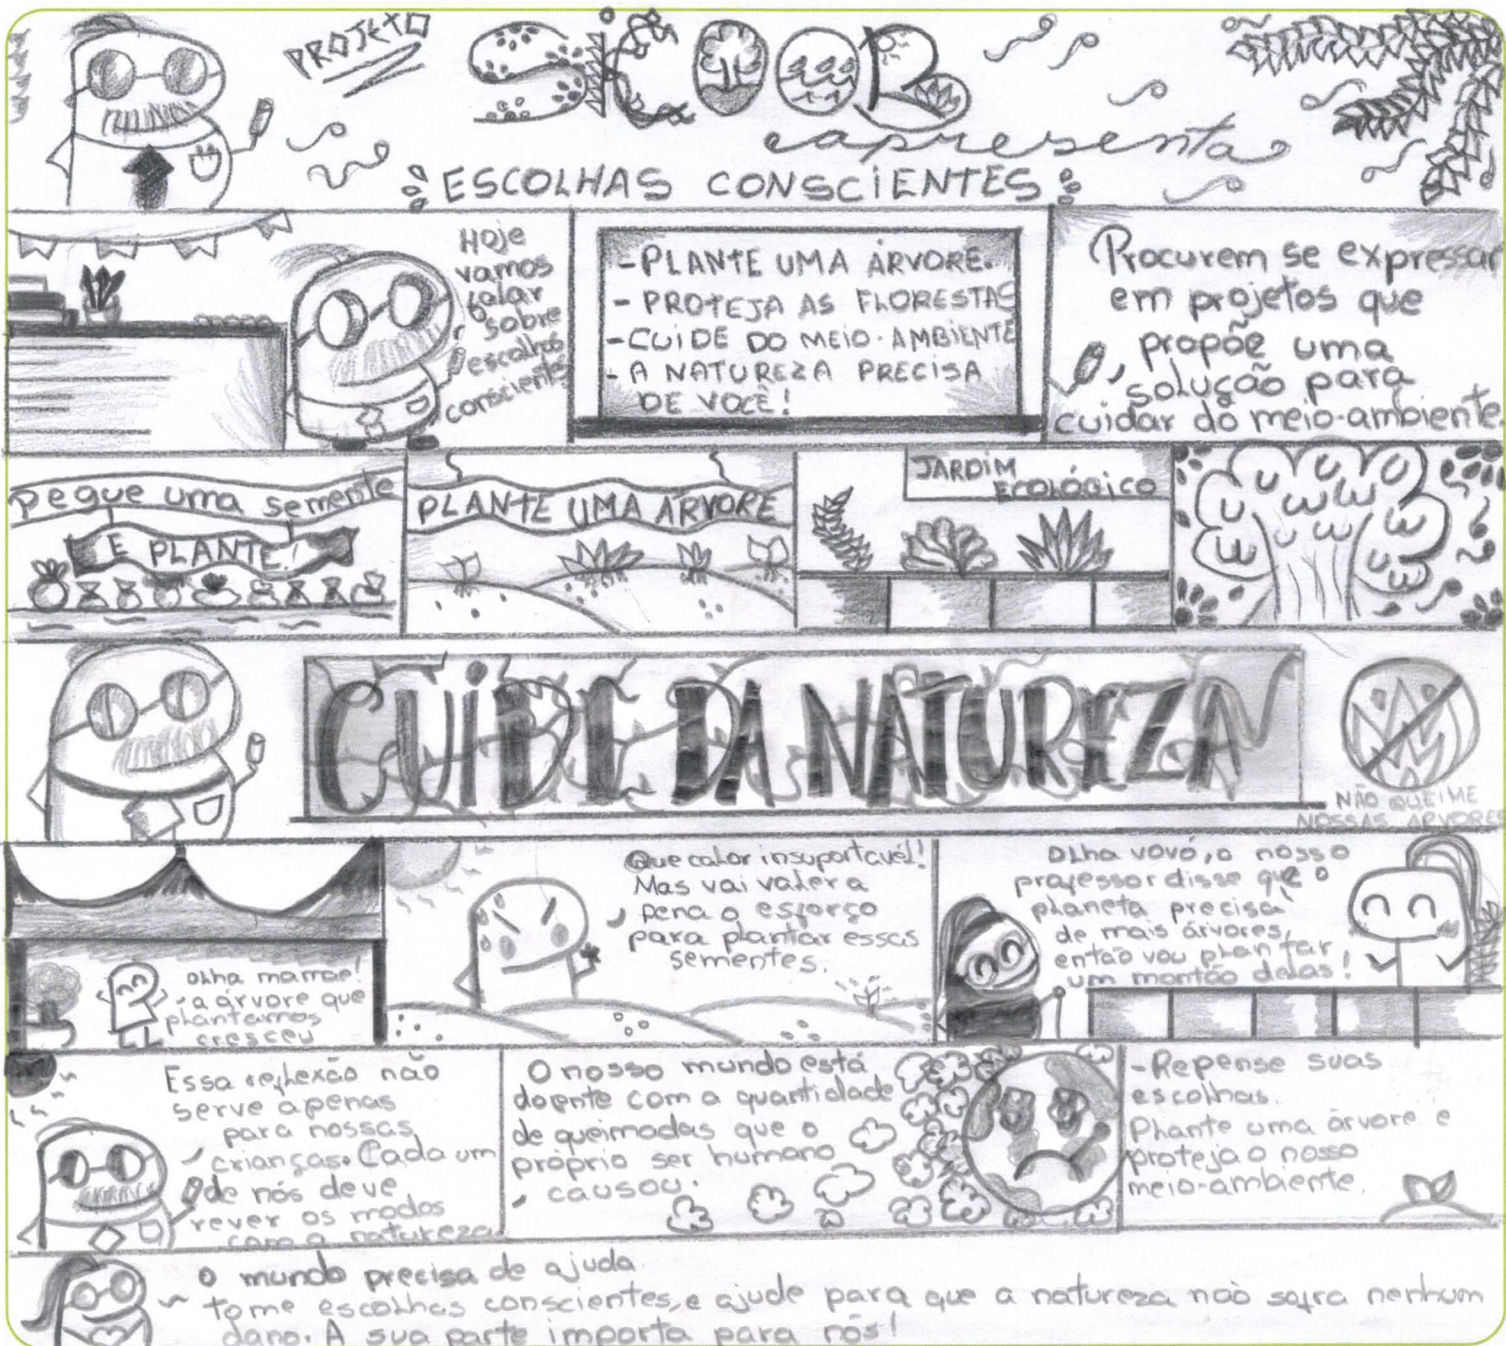 PROJETO
SICOOB
apresenta
ESCOLHAS CONSCIENTES
Hoje
vamos
falar
sobre
escolhas
conscientes
- PLANTE UMA ÁRVORE.
- PROTEJA AS FLORESTAS
- CUIDE DO MEIO-AMBIENTE
- A NATUREZA PRECISA
DE VOCÊ!
Procurem se expressar
em projetos que
propõe uma
solução para
cuidar do meio-ambiente.
Pegue uma semente
E PLANTE!
PLANTE UMA ÁRVORE
JARDIM
ECOLÓGICO
CUIDE DA NATUREZA
NÃO QUEIME
NOSSAS ARVORES
Olha mamãe!
a árvore que
plantamos
cresceu
Que calor insuportavél!
Mas vai valer a
pena o esforço
para plantar essas
sementes.
Olha vovó, o nosso
professor disse que o
planeta precisa
de mais árvores,
então vou plantar
um montão delas!
Essa reflexão não
serve apenas
para nossas
crianças. Cada um
de nós deve
rever os modos
com a natureza
O nosso mundo está
doente com a quantidade
de queimadas que o
próprio ser humano
causou.
- Repense suas
escolhas.
Plante uma árvore e
proteja o nosso
meio-ambiente.
O mundo precisa de ajuda.
tome escolhas conscientes, e ajude para que a natureza não sofra nenhum
dano. A sua parte importa para nós!